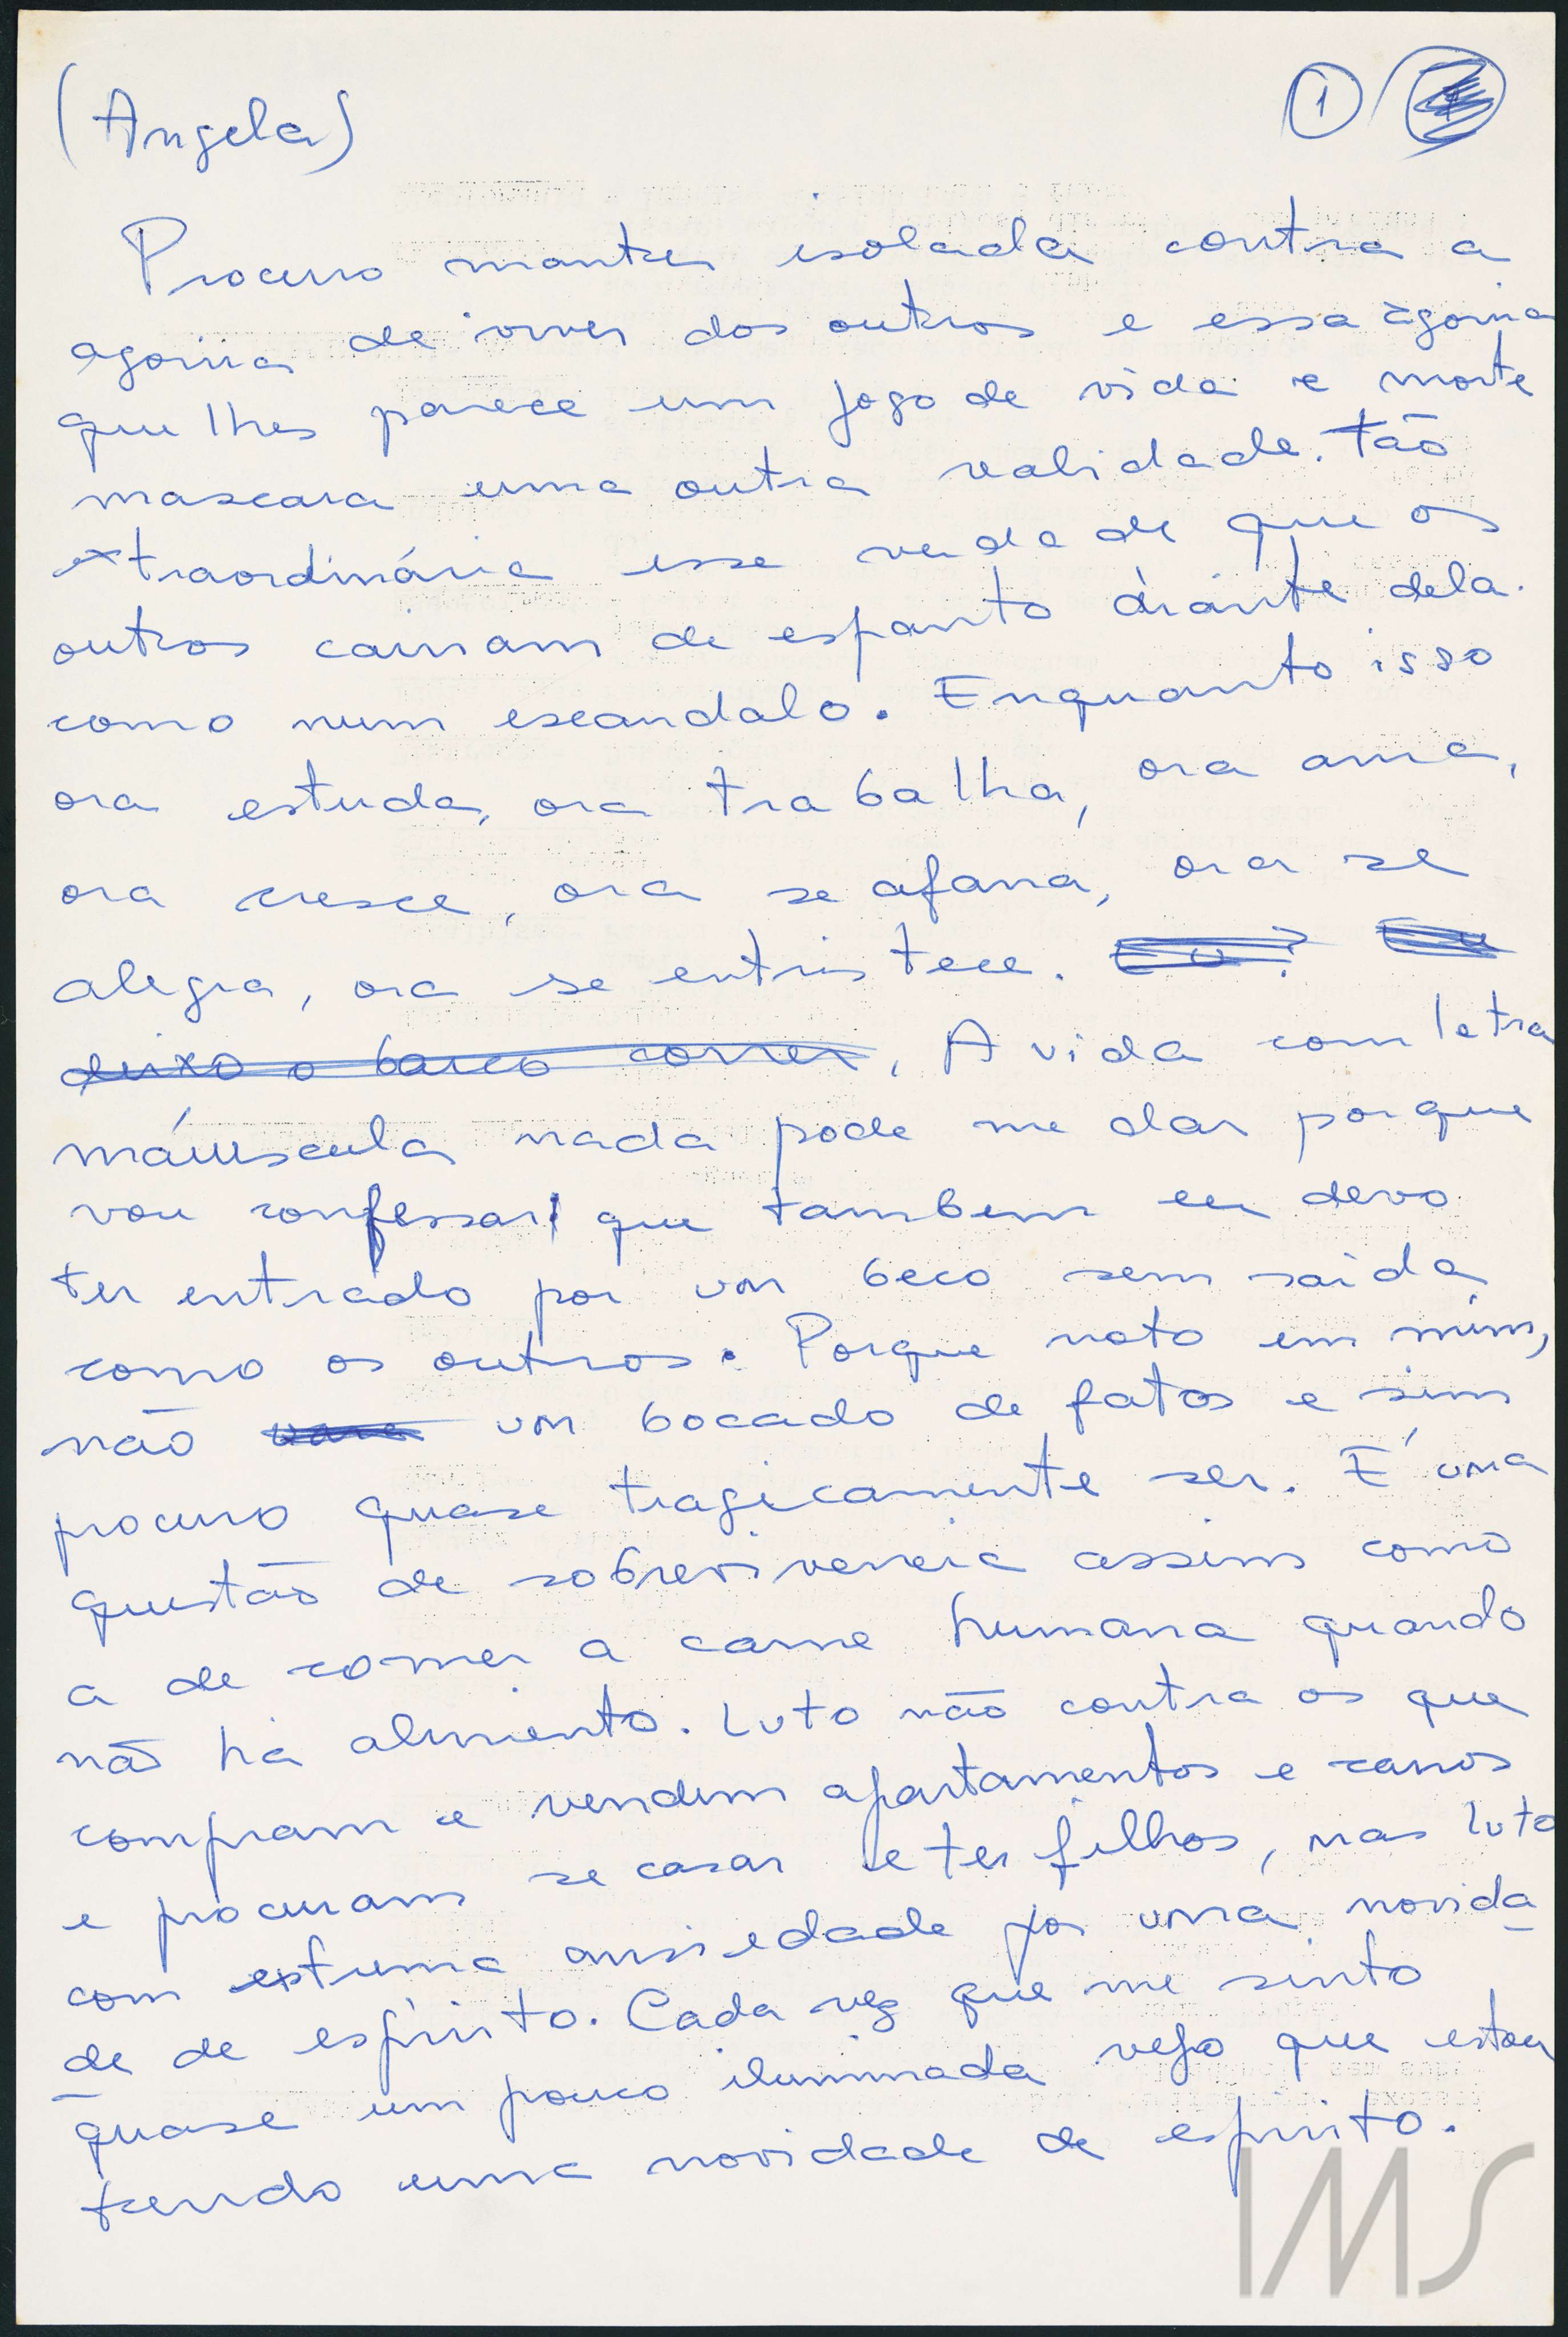 (Angela) 1
Procuro manter isolada contra a
agonia de viver dos outros e essa agonia
que lhes parece um jogo de vida e morte
mascara uma outra realidade. Tão
extraordinária esse verdade que os
outros cairiam de espanto diante dela.
como num escandalo. Enquanto isso
ora estuda, ora trabalha, ora ama,
ora cresce, ora se afana, ora se
alegra, ora se entristece. Eu? Eu
deixo o barco correr, A vida com letra
maiuscula nada pode me dar porque
vou confessar que tambem eu devo
ter entrado por um beco sem saida
como os outros. Porque noto em mim,
não um bocado de fatos e sim
procuro quase tragicamente ser. É uma
questão de sobrevivencia assim como
a de comer a carne humana quando
não há alimento. Luto não contra os que
compram e vendem apartamentos e carros
e procuram se casar e ter filhos, mas luto
com extrema ansiedade por uma novida
de de espirito. Cada vez que me sinto
quase um pouco iluminada vejo que estou
tendo uma novidade de espirito.
IMS